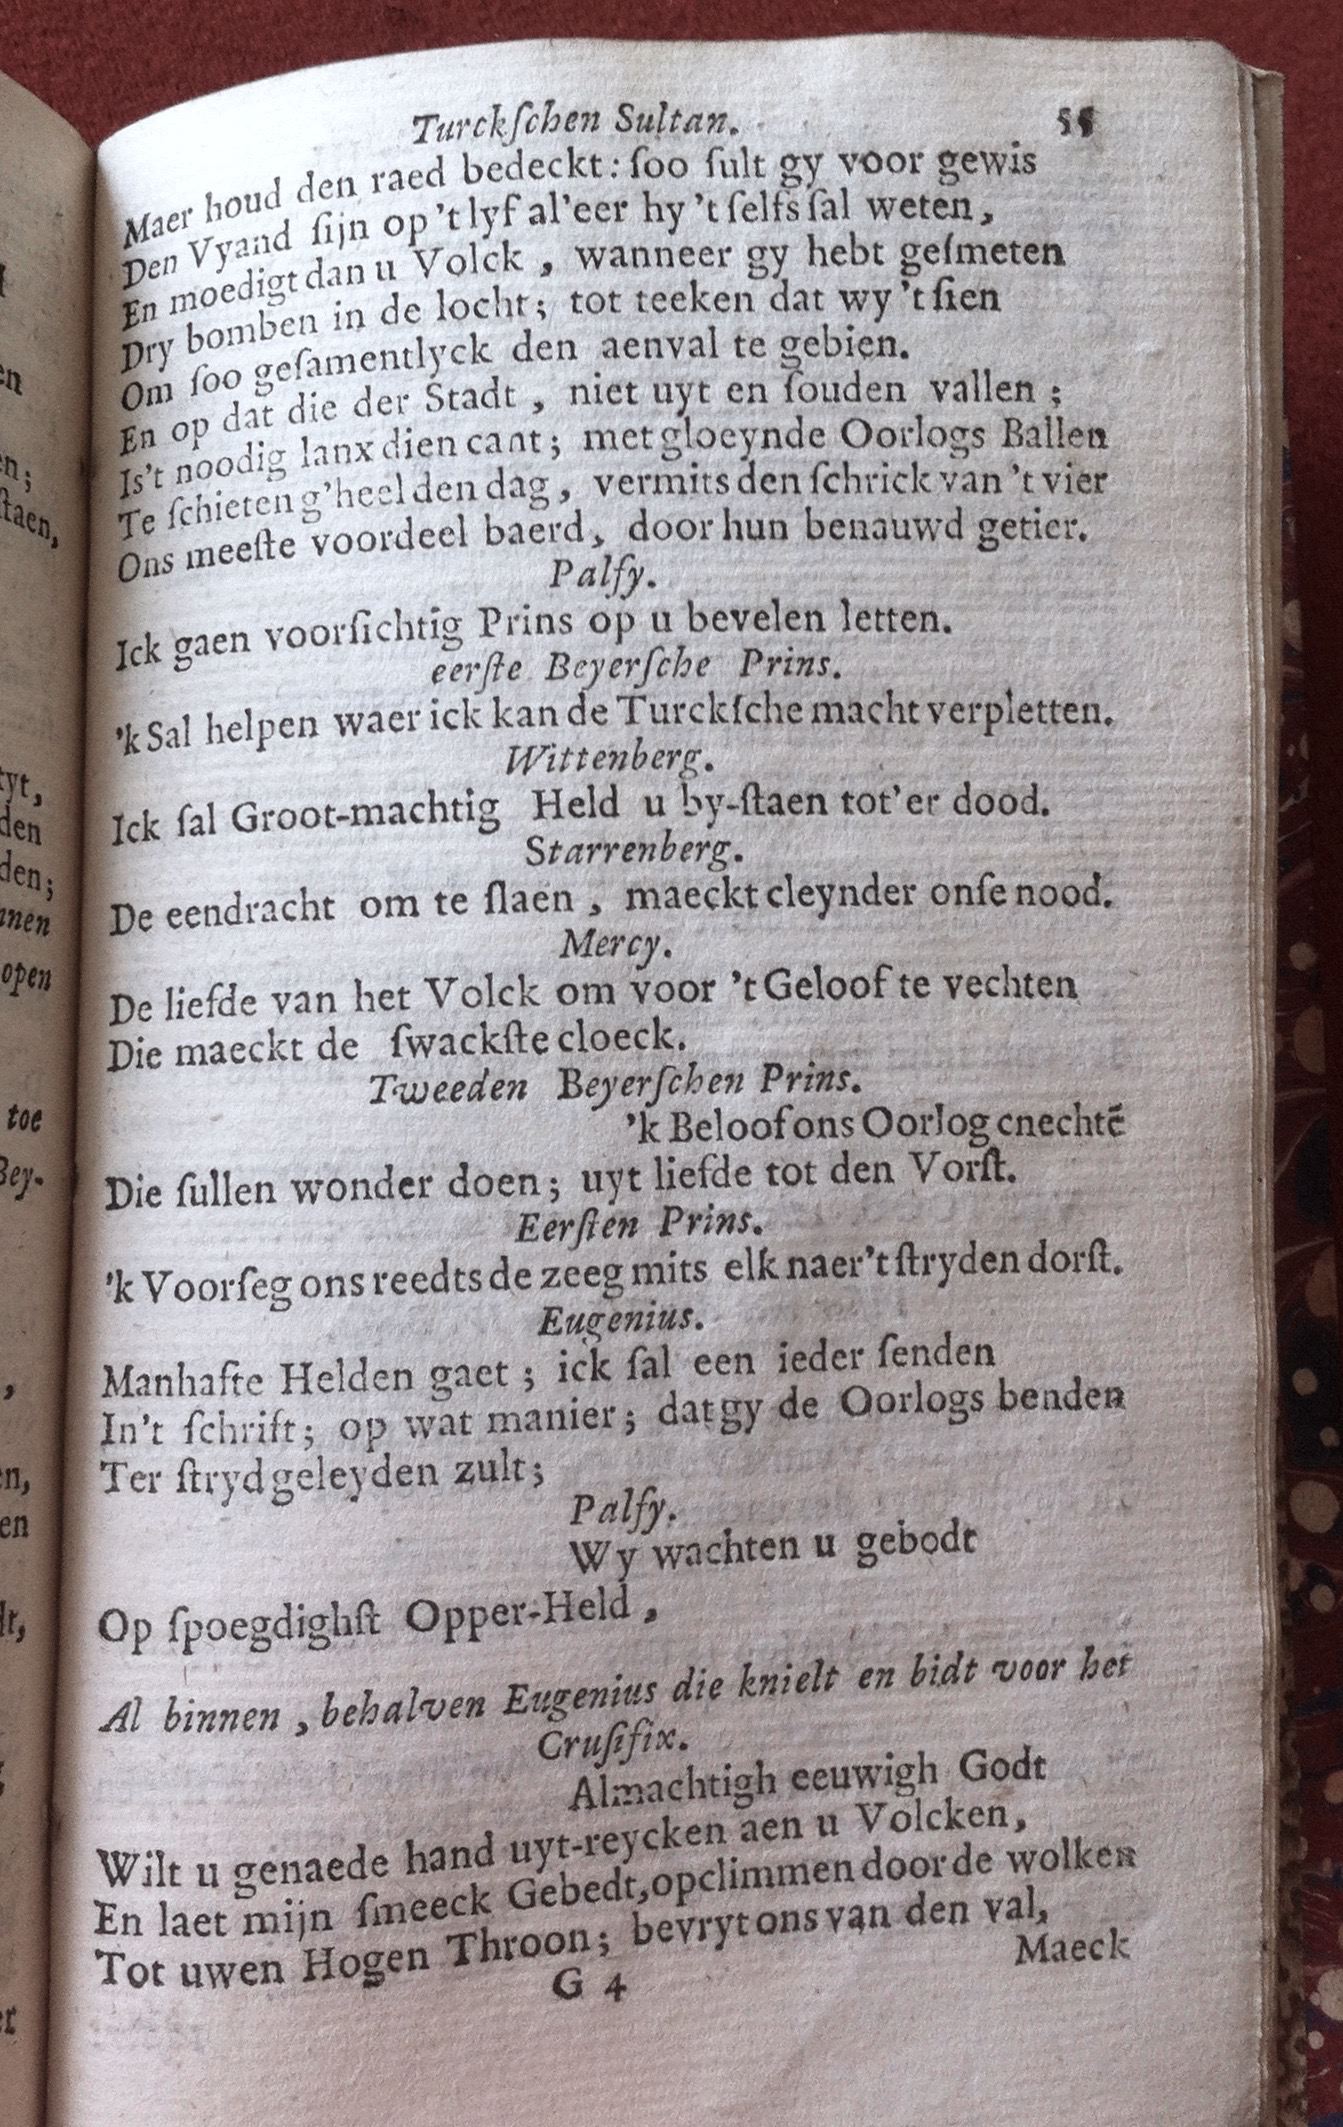 Turckſchen Sultan. 55
Maer houd den raed bedeckt: ſoo ſult gy voor gewis
Den Vyand ſijn op 't lyf al'eer hy 't ſelfs ſal weten,
En moedigt dan u Volck, wanneer gy hebt geſmeten
Dry bomben in de locht; tot teeken dat wy 't ſien
Om ſoo geſamentlyck den aenval te gebien.
En op dat die der Stadt, niet uyt en ſouden vallen;
Is't noodig lanx dien cant; met gloeynde Oorlogs Ballen
Te ſchieten g'heel den dag, vermits den ſchrick van 't vier
Ons meeſte voordeel baerd, door hun benauwd getier.
Palfy.
Ick gaen voorſichtig Prins op u bevelen letten.
eerſte Beyerſche Prins.
'k Sal helpen waer ick kan de Turckſche macht verpletten.
Wittenberg.
Ick ſal Groot-machtig Held u by-ſtaen tot'er dood.
Starrenberg.
De eendracht om te ſlaen, maeckt cleynder onſe nood.
Mercy.
De liefde van het Volck om voor 't Geloof te vechten
Die maeckt de ſwackſte cloeck.
Tweeden Beyerſchen Prins.
'k Beloof ons Oorlog cnechtē
Die ſullen wonder doen; uyt liefde tot den Vorſt.
Eerſten Prins.
'k Voorſeg ons reedts de zeeg mits elk naer't ſtryden dorſt.
Eugenius.
Manhafte Helden gaet; ick ſal een ieder ſenden
In't ſchrift; op wat manier; dat gy de Oorlogs benden
Ter ſtryd geleyden zult;
Palfy.
Wy wachten u gebodt
Op ſpoegdighſt Opper-Held,
Al binnen, behalven Eugenius die knielt en bidt voor het
Cruſifix.
Almachtigh eeuwigh Godt
Wilt u genaede hand uyt-reycken aen u Volcken,
En laet mijn ſmeeck Gebedt, opclimmen door de wolken
Tot uwen Hogen Throon; bevryt ons van den val,
G 4 Maeck